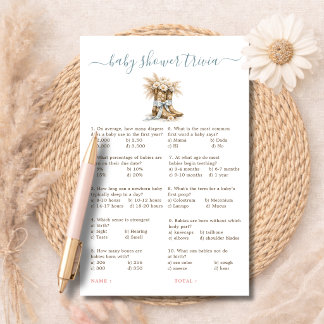 baby shower trivia
1. On average, how many diapers
a baby use in the first year?
What percentage of babies are
on their due date?
b) 10%
d) 20%
How long can a newborn baby
sleep in a day?
hours b) 10-12 hours
c) 14-17 hours d) 18-20 hours
4. Which sense is strongest
birth?
b) Hearing
c) Taste d) Smell
5. How many bones are
babies born with?
b) 206
c) 300 d) 350
6. What is the most common
first word a baby says?
a) Mama b) Dada
c) Hi d) No
7. At what age do most
babies begin teething?
a) 3-4 months b) 4-7 months
c) 9-10 months d) 1 year
8. What's the term for a baby's
first poop?
a) Colostrum b) Meconium
c) Lanugo d) Mucus
9. Babies are born without which
body part?
a) kneecaps b) tailbone
c) elbows d) shoulder blades
10. What can babies not do
at birth?
a) see color b) cough
c) sneeze d) hear
NAME :
TOTAL :